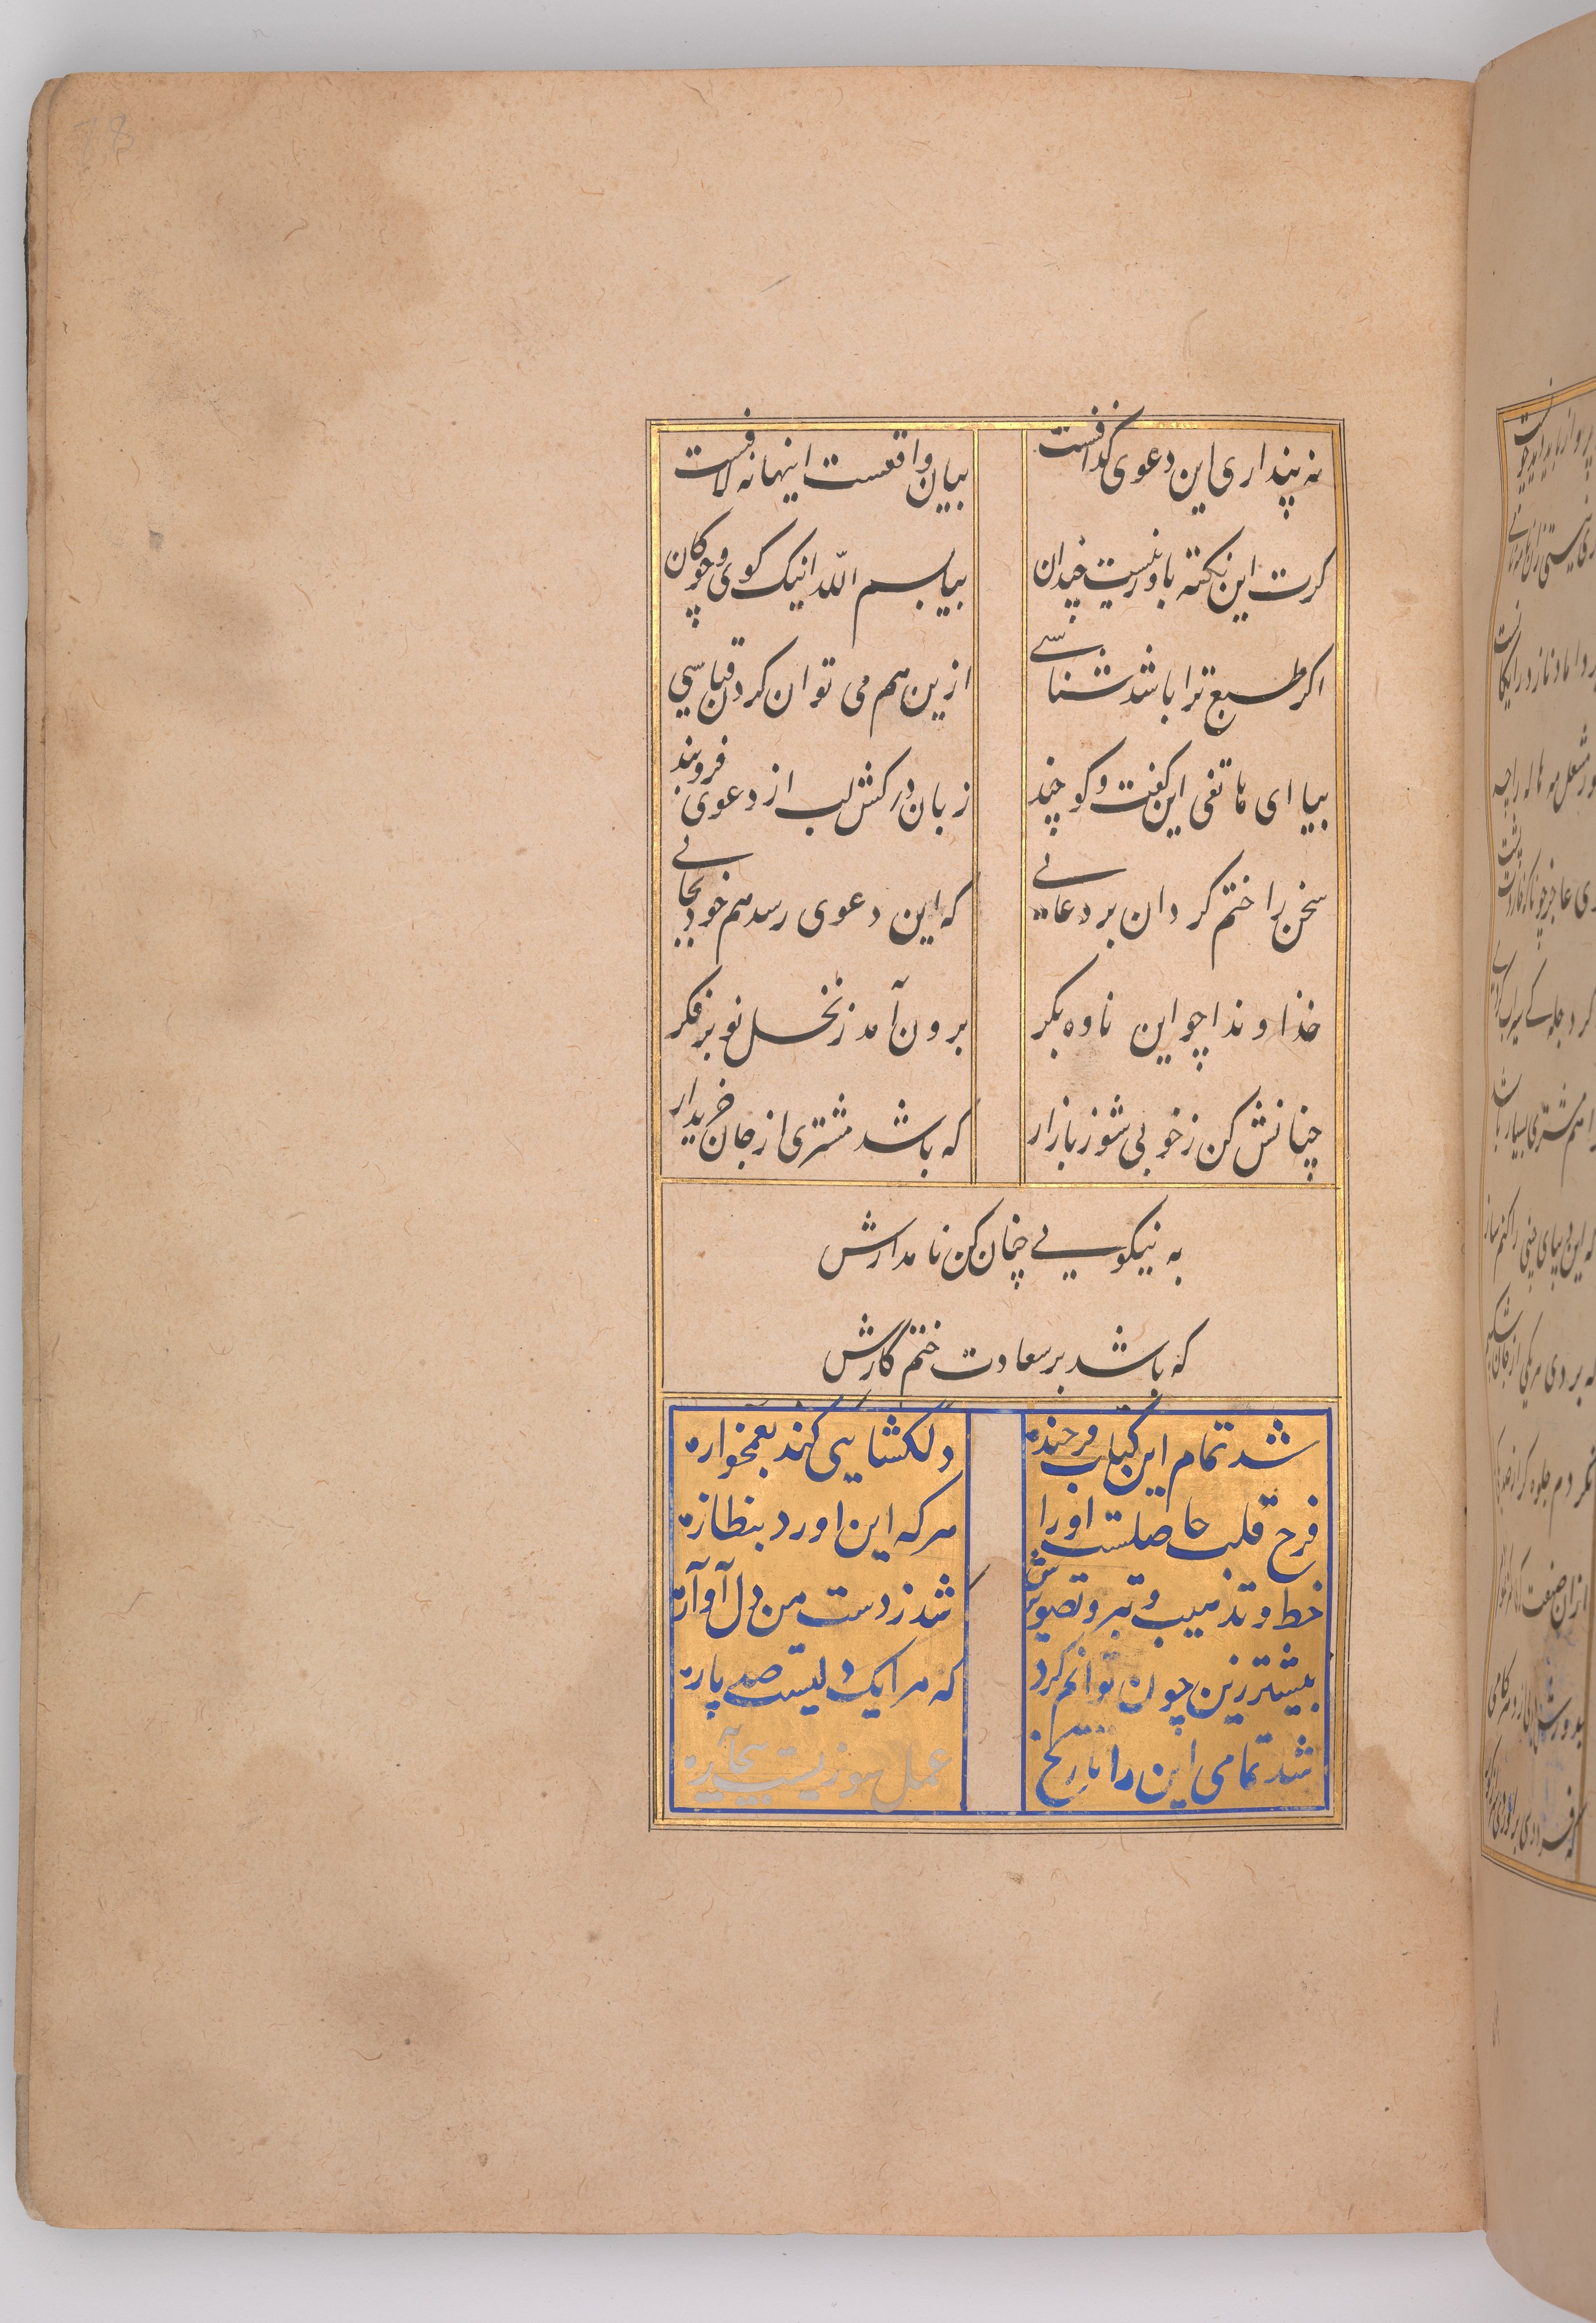 نه پنداری این دعوی گذافست
بیان واقعست اینها نه لافست
کرت این نکته باور نیست چندان
بیا بسم الله اینک کوی و چوکان
اکر طبع ترا باشد شناسی
ازین هم می توان کردن قیاسی
بیا ای هاتفی این کفت و کو چند
زبان درکش لب از دعوی فروبند
سخن را ختم کردان بر دعائی
که این دعوی رسد هم خود بجائی
خداوندا چو این ناوه بکر
برون آمد ز نخل نوبر فکر
چنانش کن ز خوبی شور بازار
که باشد مشتری از جان خریدار
به نیکویی چنان کن نامدارش
که باشد بر سعادت ختم کارش
شد تمام این کتاب فرخنده
دلکشایی کند بغمخواره
فرح قلب حاصلست او را
هرکه این اورد بنظاره
خط و تذهیب و تصویرش
شد ز دست من دل آواره
بیشتر زین چون توانم کرد
که مرا یک دلیست صد پاره
شد تمامی این را تاریخ
عمل سوزیست بیچاره